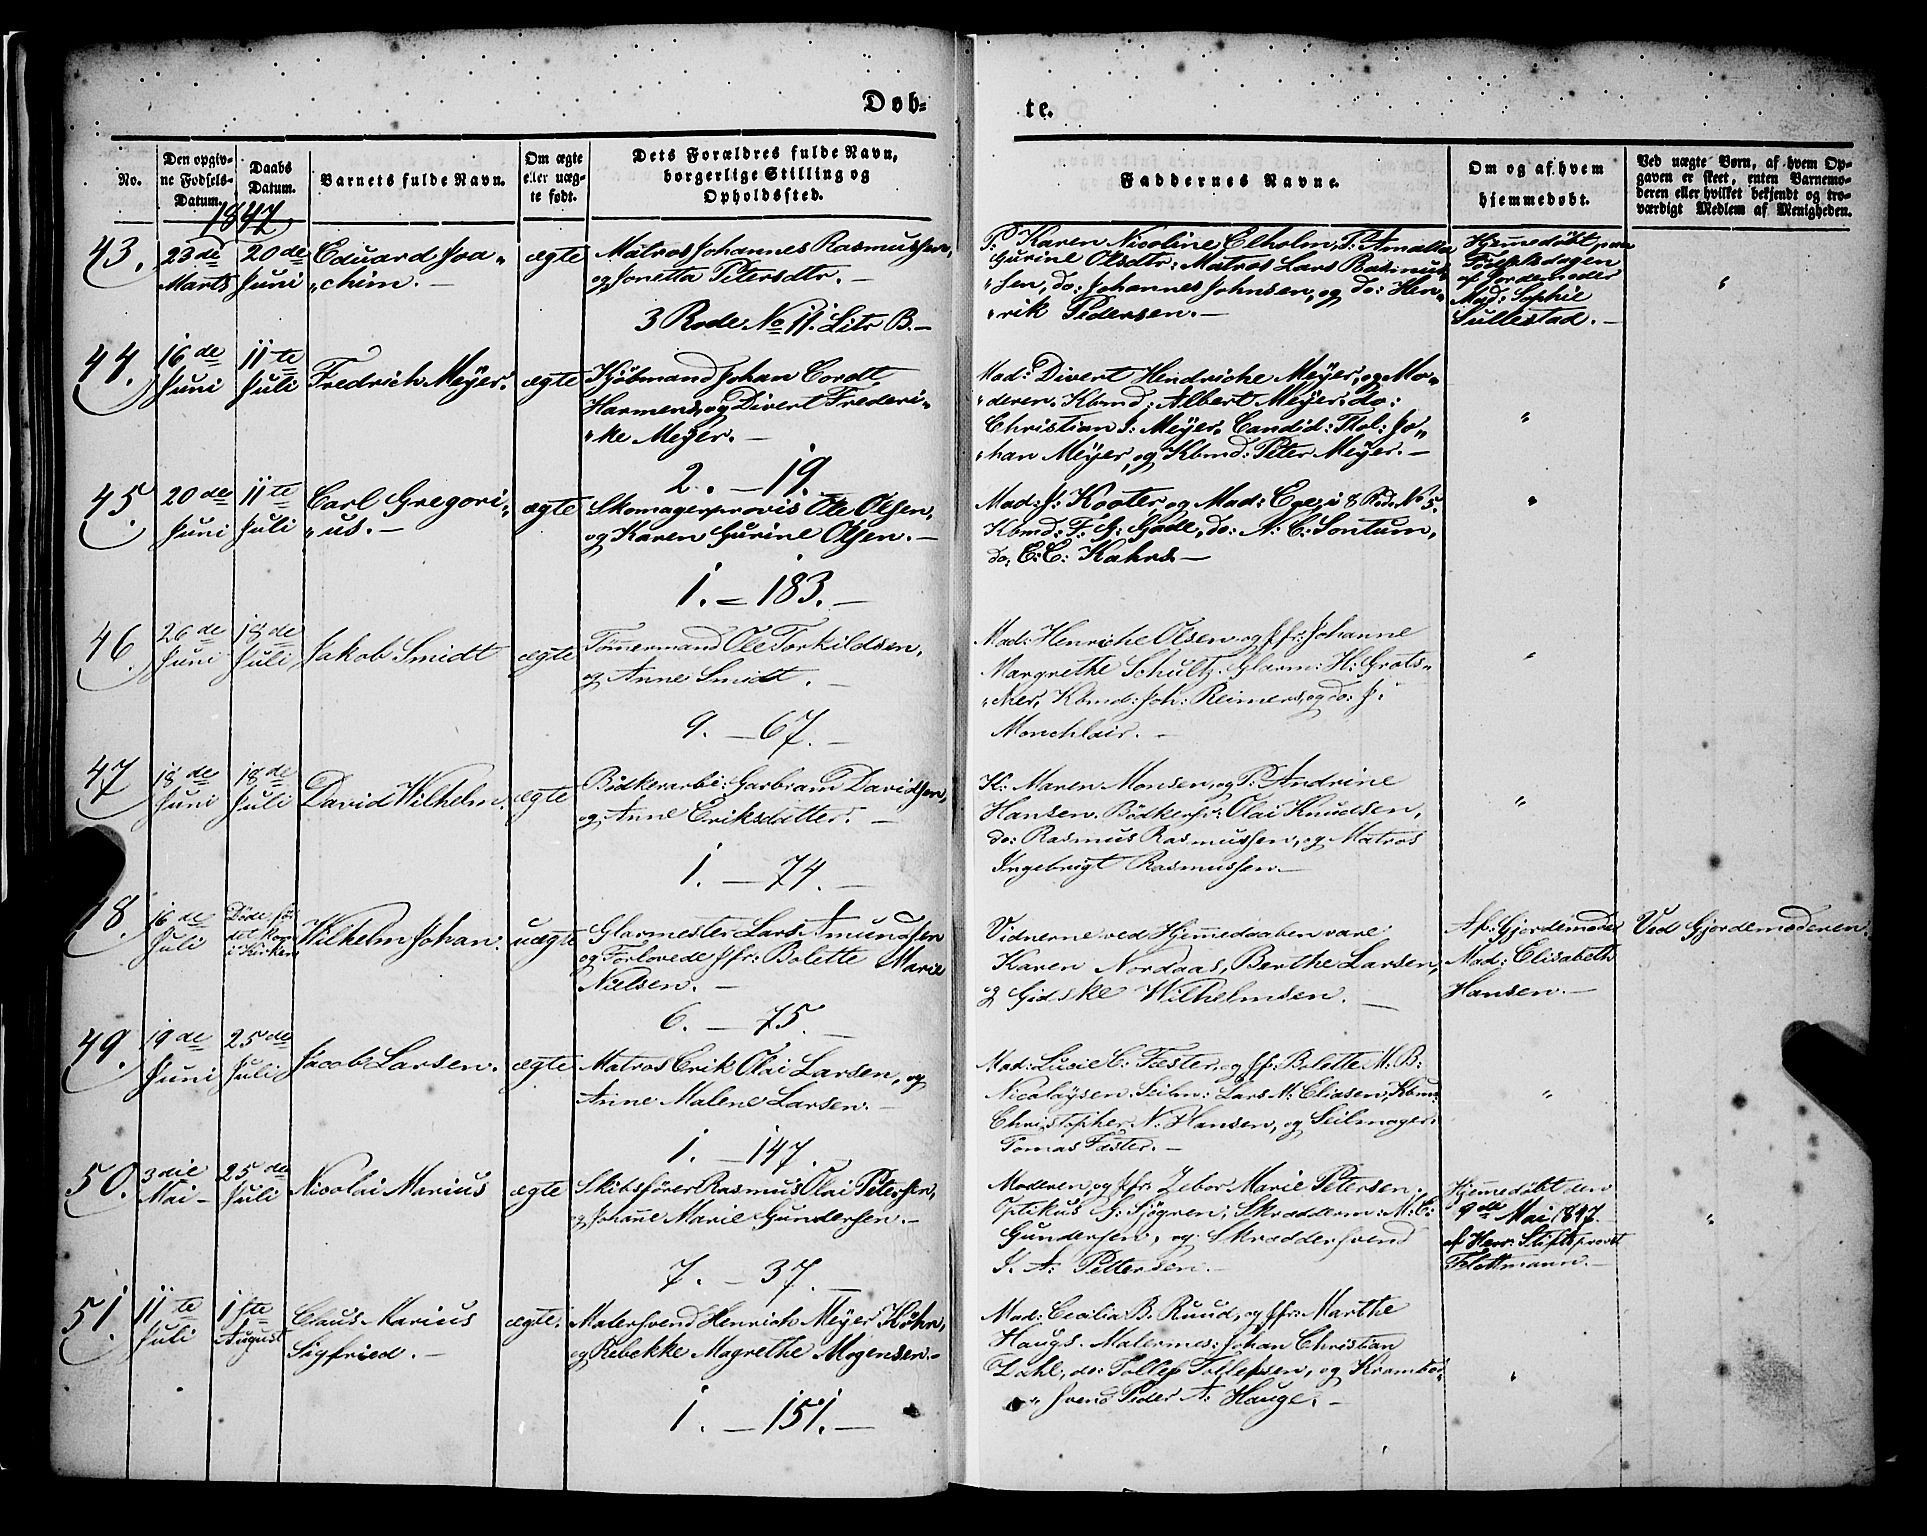 Døb-
te.
No.
Den opgiv-
ne Fødsels-
Datum.
Daabs
Datum.
Barnets fulde Navn.
Om ægte
eller uæg-
te født.
Dets Forældres fulde Navn,
borgerlige Stilling og
Opholdssted.
Faddernes Navne.
Om og af hvem
hjemmedøbt.
Ved uægte Børn, af hvem Op-
gaven er skeet, enten Barnemo-
deren eller hvilket bekjendt og tro-
værdigt Medlem af Menigheden.
1847
43.
23de
Marts
20de
Juni
Eduard Joa-
"chim.
ægte
Matros Johannes Rasmussen,
og Jonetta Petersdtr. —
3 Rode No 11. Litr B. —
P: Karen Nicoline Elholm, P: Amalia
Gurine Olsdtr: Matros Lars Rasmus-
"sen, do: Johannes Johnsen, og do: Hen-
"rik Pedersen. —
Hjemmedøbt paa
Fødselsdagen
af Jordemoder
Mad: Sophie
Sullestad. —
"
44.
16de
Juni
11te
Juli
Fredrich Meyer.
ægte
Kjöbmand Johan Cordt
Harmens, og Divert Frederi-
"ke Meyer. —
2. — 19. —
Mad: Divert Hendriche Meyer, og Mo-
"deren. Kbmd: Albert Meyer, do:
Christian J: Meyer, Candid: Thol: Jo-
"han Meyer, og Kbmd: Peter Meyer. —
"
45.
20de
Juni
11te
Juli
Carl Gregori-
"us. —
ægte
Skomagerprovis Ole Olsen,
og Karen Gurine Olsen. —
1. — 183. —
Mad: J: Kooter, og Mad: Ege, i 8 Rde No 5.
Kbmd: F: G: Gade, do: N: C: Sontum,
do: C: C: Kahrs. —
"
46.
26de
Juni
18de
Juli
Jakob Smidt
ægte
Tömmermand Ole Torkildsen,
og Anne Smidt. —
9. — 67. —
Mad: Henriche Olsen, og Jfr: Johanne
Margrethe Schultz. Glarm: H: Grots-
Kbmd: Joh: Reimers, og do: J:
Monchlair. —
"
47
18de
Juni
18de
Juli
David Wilhelm.
ægte
Bödkerarbe: Garbram Davidsen,
og Anne Eriksdatter. —
1. — 74. —
K: Maren Monsen, og P: Andrine
Hansen. Bödkersv: Olai Knudsen,
do: Rasmus Rasmussen, og Matros
Ingebrigt Rasmussen. —
"
48.
16de
Juli
Døde før
det kom
i Kirken
Wilhelm Johan.
uægte
Glarmester Lars Amundsen
og Forlovede Jfr: Bolette Marie
Nielsen. —
6. — 75. —
Vidnerne ved Hjemmedaaben vare:
Karen Nordaas, Berthe Larsen,
og Gidske Wilhelmsen. —
Af: Gjordemoder
Mad: Elisabeth
Hansen. —
Ved Gjordemoderen.
49.
19de
Juni
25de
Juli
Jacob Larsen.
ægte
Matros Erik Olai Larsen, og
Anne Malene Larsen. —
1. — 147. —
Mad: Lucie C: Fæster, og Jfr: Bolette M: B:
Nicolaysen. Seilm: Lars M: Eliasen, Kbm:
Christopher N: Hansen, og Seilmager:
Tomas Fæster. —
"
50.
3die
Mai —
25de
Juli
Nicolai Marius
ægte
Skibsfører Rasmus Olai Petersen,
og Johanne Marie Gundersen. —
7. — 37. —
Moderen, og Jfr: Zebor Marie Petersen.
Optikus G: Sjögren, Skrædderm: M: C:
Gundersen, og Skræddersvend
J. A: Pettersen. —
Hjemmedøbt den
9de Mai 1847.
af Herr: Stiftsprovst
—
"
51.
11te
Juli
1ste
August
Claus Marius
Sigfried. —
ægte.
Malersvend Henrich Meyer Köhn,
og Rebekke Magrethe Mogensen. —
1. — 151. —
Mad: Cecilia B. Ruud, og Jfr: Marthe
Haugs. Malermes: Johan Christian
Dahl, do: Tollef Tollefsen, og Krambod-
" svend Peder A: Hauge. —
"